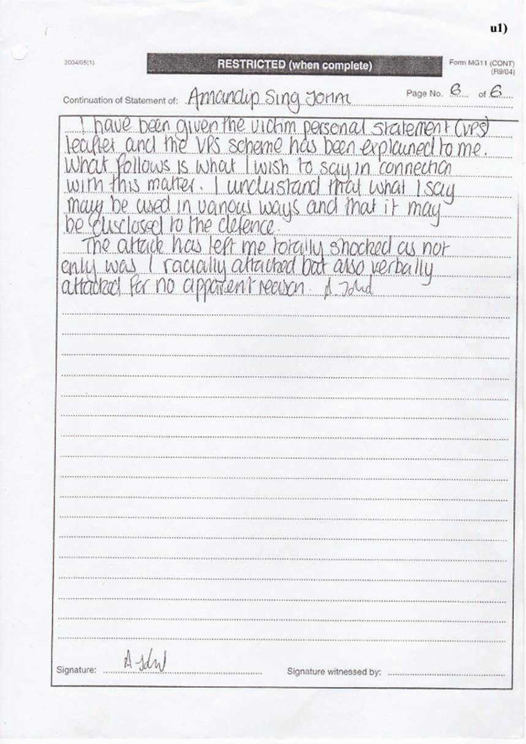 u1)
2004/05(1)
RESTRICTED (when complete)
Form MG11 (CONT)
(R9/04)
Continuation of Statement of: Amandip Sing Johal
Page No. 6 of 6
I have been given the victim personal statement (VPS)
leaflet and the VPS scheme has been explained to me.
What follows is what I wish to say in connection
with this matter. I understand that what I say
may be used in various ways and that it may
be disclosed to the defence.
The attack has left me totally shocked as not
only was I racially attacked but also verbally
attacked for no apparent reason. A. Johal
Signature: A. Johal
Signature witnessed by: